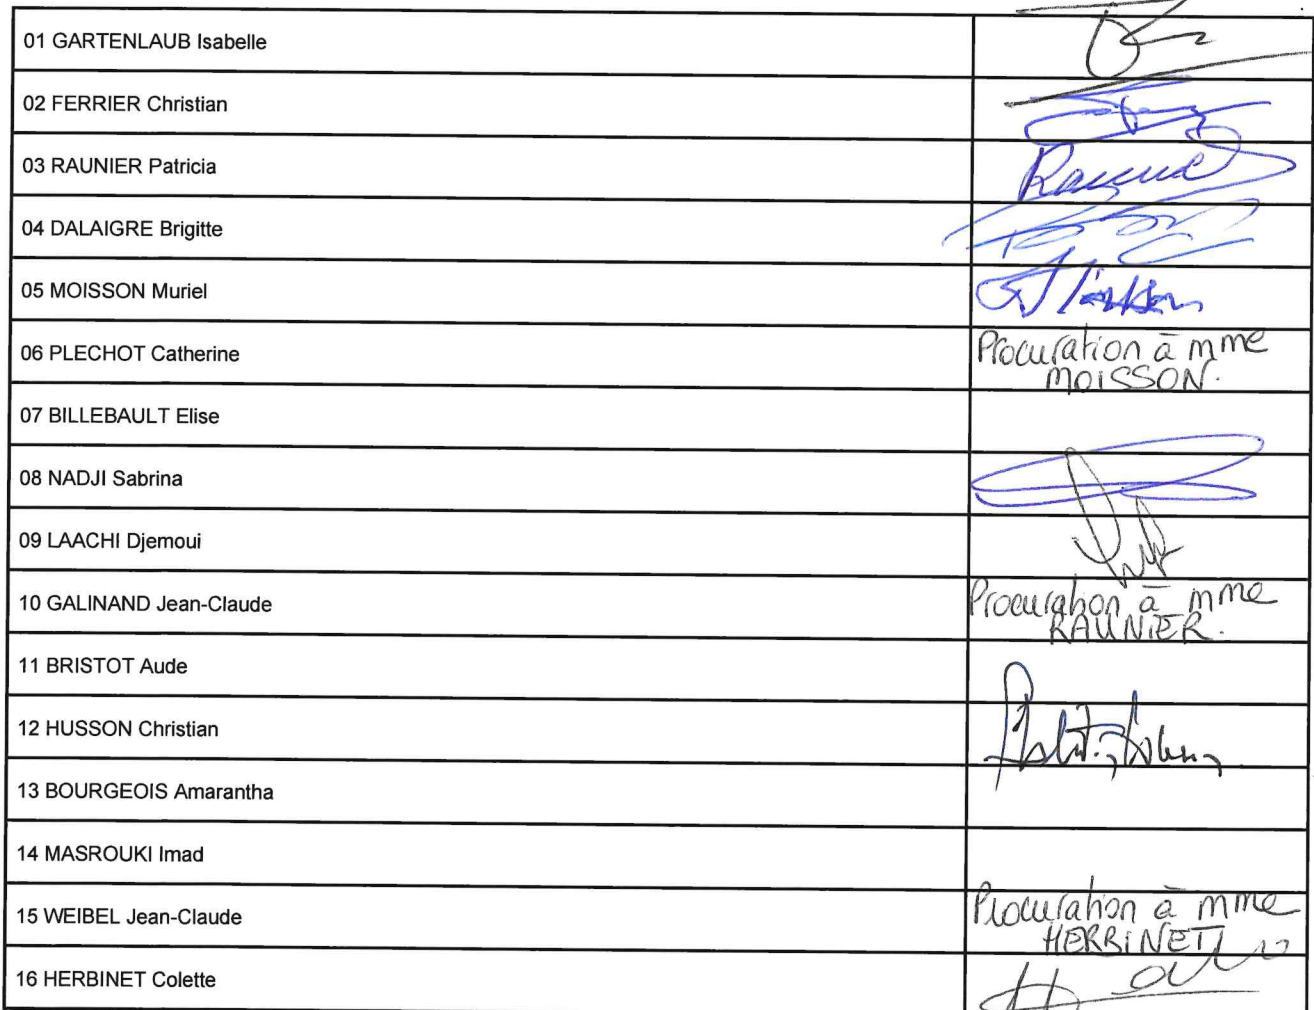 01 GARTENLAUB Isabelle
02 FERRIER Christian
03 RAUNIER Patricia
04 DALAIGRE Brigitte
05 MOISSON Muriel
06 PLECHOT Catherine
Procuration à mme
MOISSON.
07 BILLEBAULT Elise
08 NADJI Sabrina
09 LAACHI Djemoui
10 GALINAND Jean-Claude
Procuration à mme
RAUNIER.
11 BRISTOT Aude
12 HUSSON Christian
13 BOURGEOIS Amarantha
14 MASROUKI Imad
15 WEIBEL Jean-Claude
Procuration à mme
HERBINET
16 HERBINET Colette